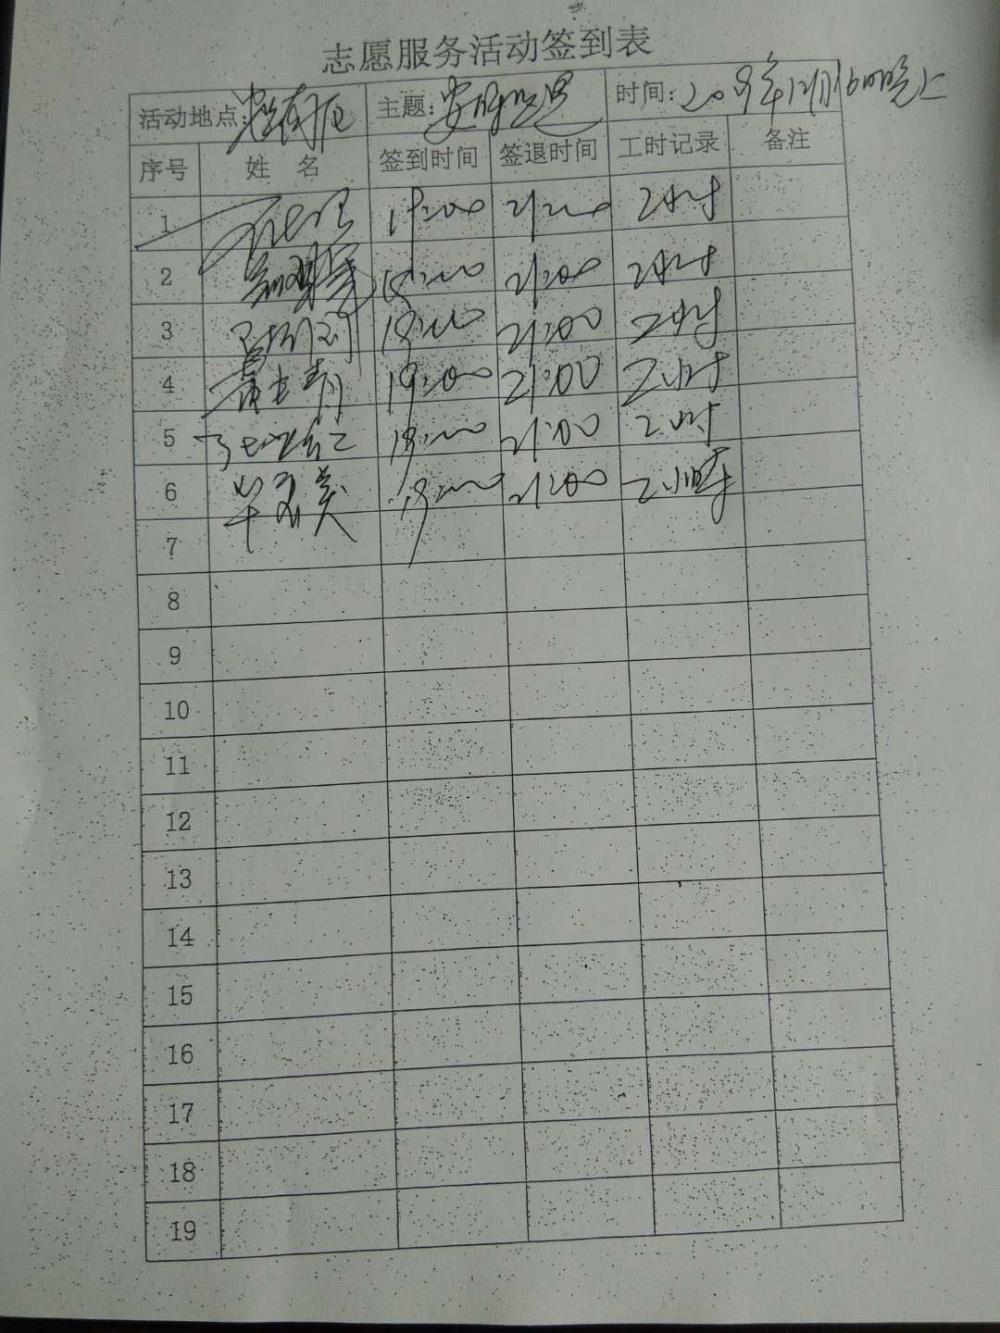 志愿服务活动签到表
活动地点: 主题: 时间: 2019年12月16日晚上
序号 姓 名 签到时间 签退时间 工时记录 备注
1 19:00 21:00 2小时
2 19:00 21:00 2小时
3 19:00 21:00 2小时
4 19:00 21:00 2小时
5 19:00 21:00 2小时
6 19:00 21:00 2小时
7
8
9
10
11
12
13
14
15
16
17
18
19